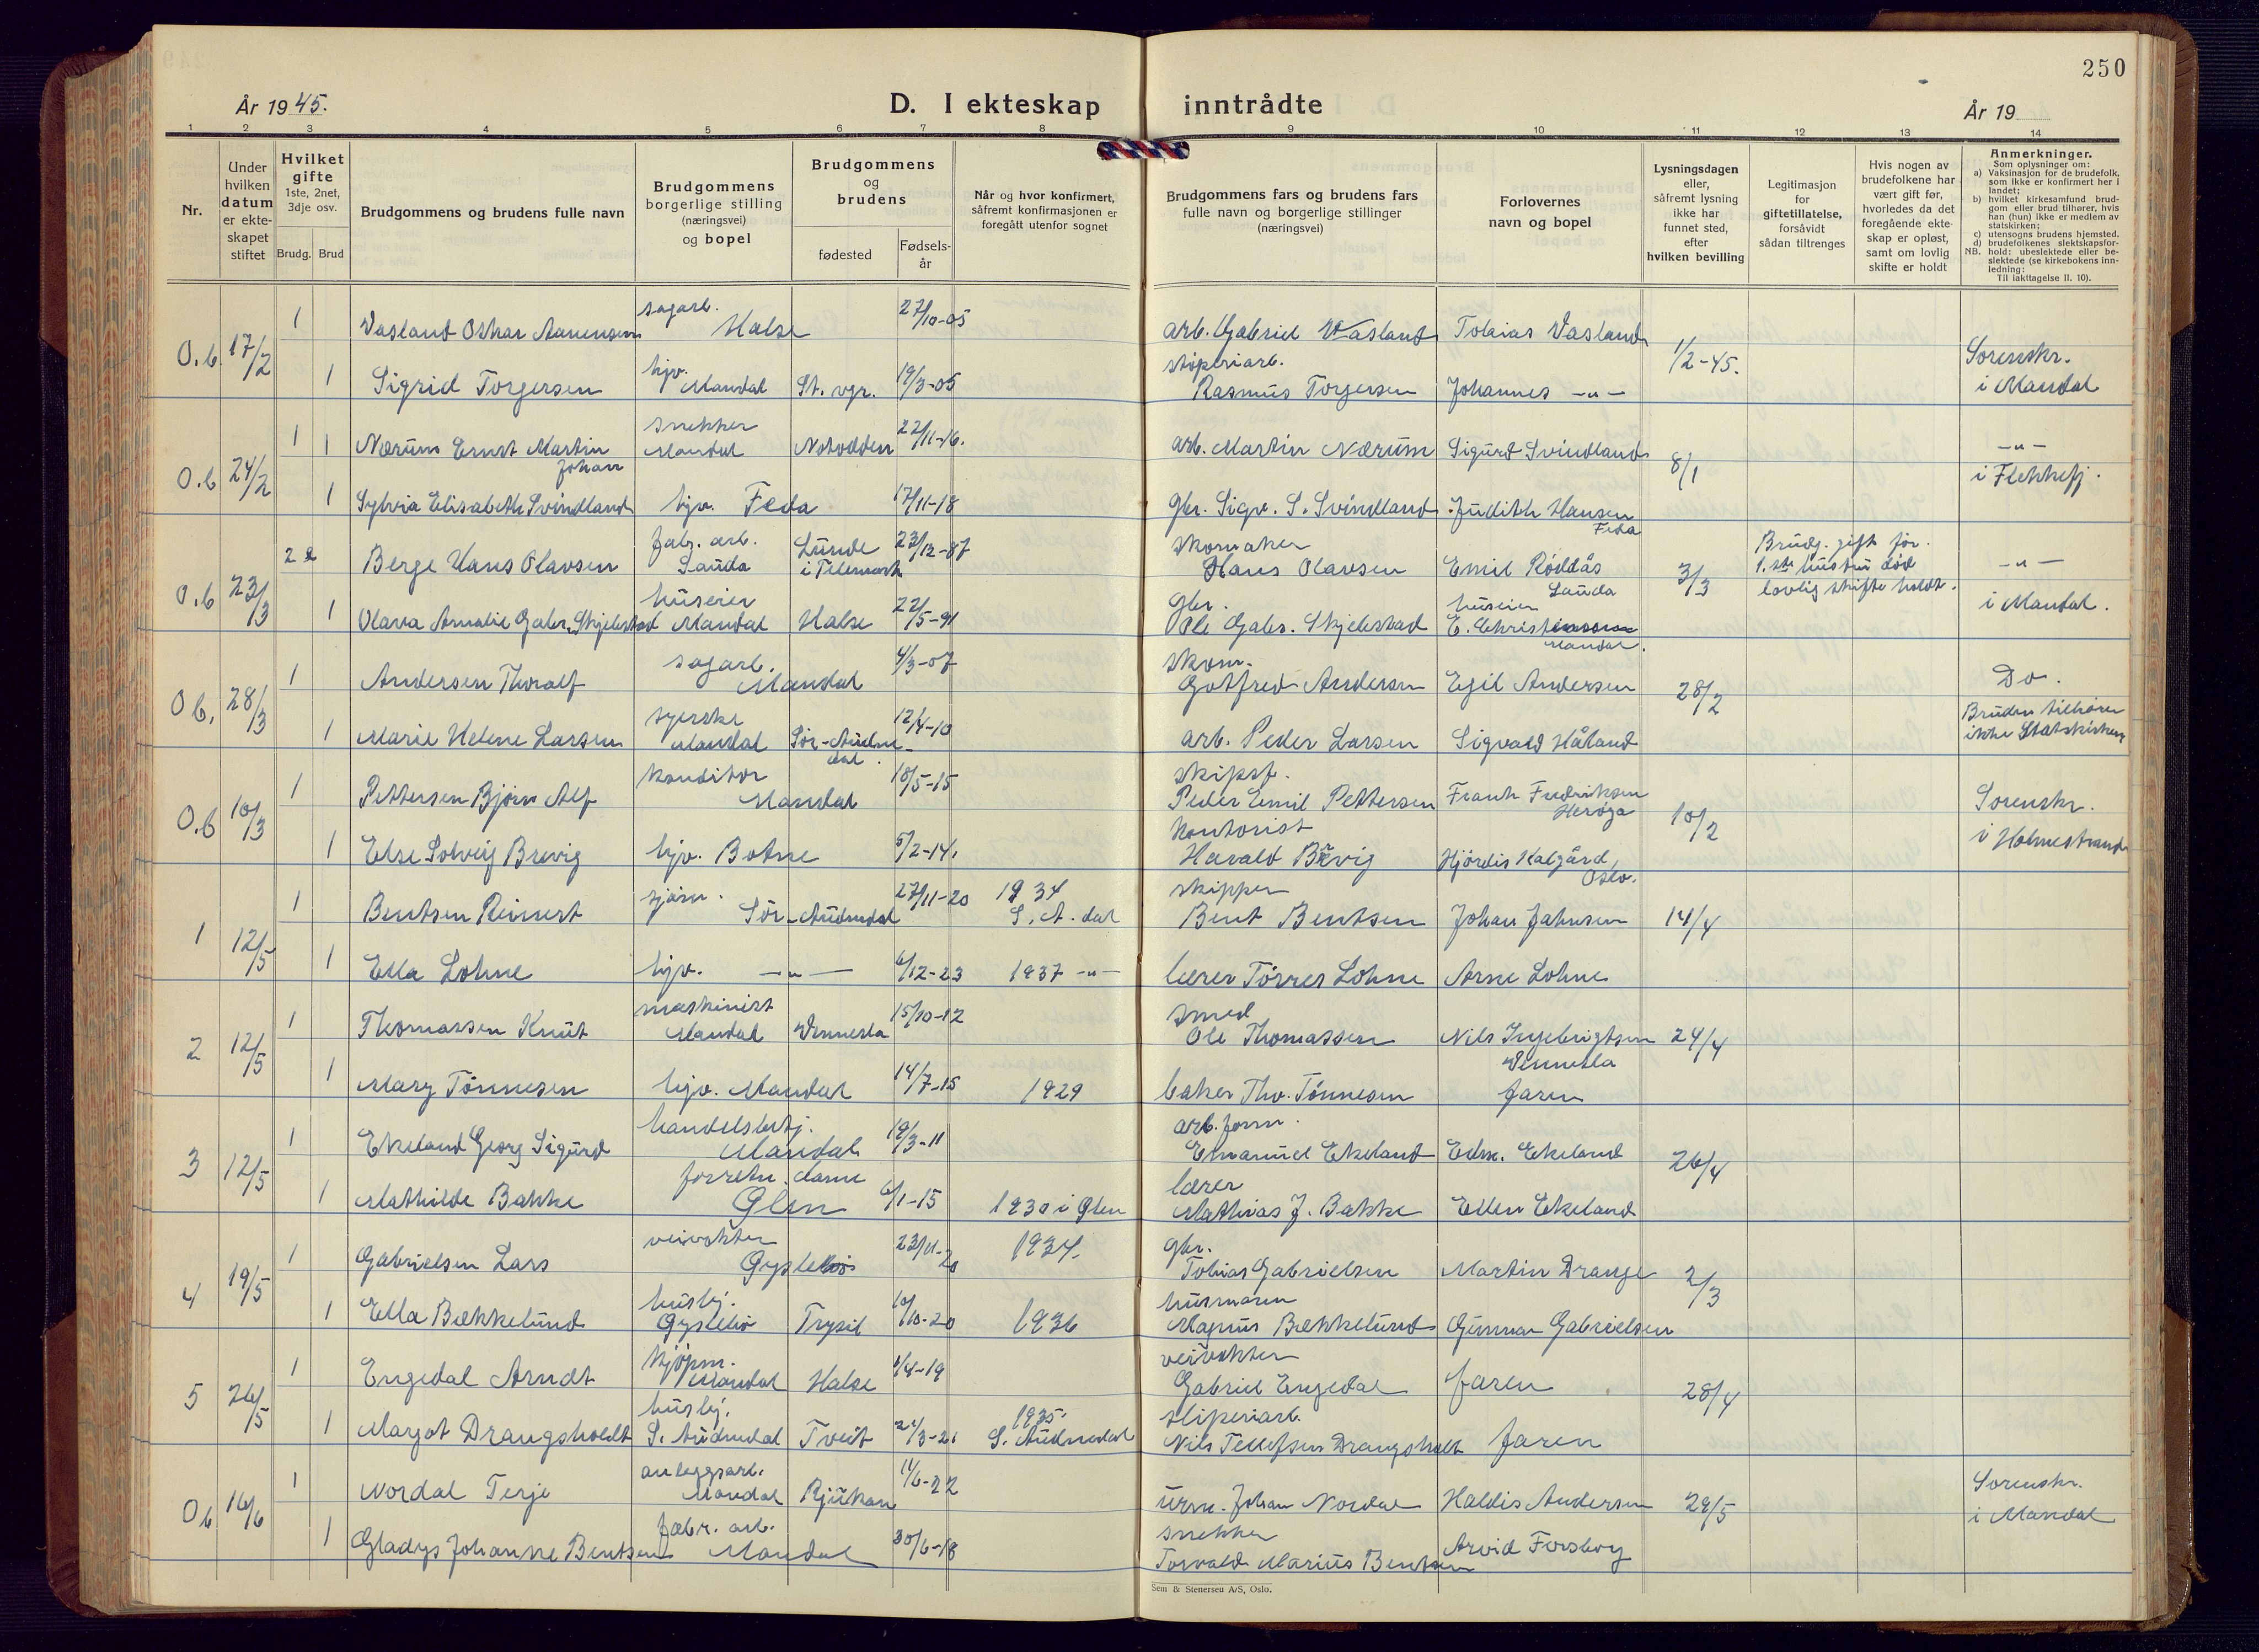 250
År 1945.
D. I ekteskap inntrådte
År 19
1 2 3 4 5 6 7 8 9 10 11 12 13 14
Nr.
Under
hvilken
datum
er ekte-
skapet
stiftet
Hvilket
gifte
1ste, 2net,
3dje osv.
Brudg. Brud
Brudgommens og brudens fulle navn
Brudgommens
borgerlige stilling
(næringsvei)
og bopel
Brudgommens
og
brudens
fødested
Fødsels-
år
Når og hvor konfirmert,
såfremt konfirmasjonen er
foregått utenfor sognet
Brudgommens fars og brudens fars
fulle navn og borgerlige stillinger
(næringsvei)
Forlovernes
navn og bopel
Lysningsdagen
eller,
såfremt lysning
ikke har
funnet sted,
efter
hvilken bevilling
Legitimasjon
for
giftetillatelse,
forsåvidt
sådan tiltrenges
Hvis nogen av
brudefolkene har
vært gift før,
hvorledes da det
foregående ekte-
skap er opløst,
samt om lovlig
skifte er holdt
Anmerkninger.
Som oplysninger om:
a) Vaksinasjon for de brudefolk,
som ikke er konfirmert her i
landet;
b) hvilket kirkesamfund brud-
gom eller brud tilhører, hvis
han (hun) ikke er medlem av
statskirken;
c) utensogns brudens hjemsted.
d) brudefolkenes slektskapsfor-
NB. hold: ubeslektede eller be-
slektede (se kirkebokens inn-
ledning:
Til iakttagelse II. 10).
O.b. 17/2 1 Vasland Oskar Aanensen sagarb. Halse 27/10-05 arb. Gabriel Vasland Tobias Vasland 1/2-45. Sorenskr.
1 Sigrid Torgersen hjv. Mandal St. vgr. 19/3-05 støperiarb. Rasmus Torgersen Johannes -"- i Mandal
O.b 24/2 1 1 Nærum Ernst Martin Johan snekker Mandal Notodden 22/11-16. arb. Martin Nærum Sigurd Svindland 8/1 -"-
1 Sylvia Elisabeth Svindland hjv. Feda 17/11-18 gbr. Sigv. S. Svindland Judith Hansen Feda i Flekkefj.
O.b 23/3 2 Berge Hans Olavsen fabr. arb. Sauda Lunde i Telemark 23/12-87 skomaker Hans Olavsen Emil Røddås Sauda 3/3 Brudg. gift før. 1.ste hustru død lovlig skifte holdt. -"-
1 Olava Amalie Gabr. Skjelstad huseier Mandal Halse 22/5-91 gbr. Ole Gabr. Skjelstad huseier E. Christensen Mandal. i Mandal.
O b. 28/3 1 Andersen Thoralf sagarb. Mandal 4/3-07 skom. Gotfred Andersen Egil Andersen 28/2 Do.
1 Marie Helene Larsen syerske Mandal Sør-Audnedal. 12/4-10 arb. Peder Larsen Sigvald Håland Bruden tilhører ikke Statskirken
O.b 10/3 1 Pettersen Bjørn Alf konditor Mandal 18/5-15 skipsf. Peder Emil Pettersen Frank Fredriksen Herøya 10/2 Sorenskr.
1 Else Solveig Brevig hjv. Botne 5/2-14. kontorist Harald Brevig Hjørdis Kalgård, Oslo. i Holmestrand
1 12/5 1 Bentsen Reinert sjøm. Sør-Audnedal 27/11-20 1934 S. A. dal skipper Bent Bentsen Johan Jahnsen 14/4
1 Ella Lohne hjv. -"- 6/12-23 1937 -"- lærer Tørres Lohne Arne Lohne
2 12/5 1 Thomassen Knut maskinist Mandal Vennesla 15/10-12 smed Ole Thomassen Nils Ingebrigtsen Vennesla 24/4
1 Mary Tønnesen hjv. Mandal 14/7-15 1929 baker Thv. Tønnesen faren
3 12/5 1 Ekeland Georg Sigurd handelsbetj. Mandal 19/3-11 arb.form. Emanuel Ekeland Edm. Ekeland 26/4
1 Mathilde Bakke forretn. dame Glen 6/1-15 1930 i Glen lærer Mathias J. Bakke Ellen Ekeland
4 19/5 1 Gabrielsen Lars veivokter Gyslebø 23/11-20 1934. gbr. Tobias Gabrielsen Martin Drange 2/3
1 Ella Bækkelund husbj. Gyslebø Trysil 10/10-20 1936 husmann Magnus Bækkelund Gunnar Gabrielsen
5 26/5 1 Engedal Arndt kjøpm. Mandal Halse 1/4-19 veivokter Gabriel Engedal faren 28/4
1 Margot Drangsholdt husbj. S. Audnedal Tveit 21/3-21 1935. S. Audnedal sliperiarb. Nils Tellefsen Drangsholt faren
O b 16/6 1 Nordal Terje anleggsarb. Mandal Rjukan 11/6-22 urm. Johan Nordal Haldis Andersen 29/5 Sorenskr.
1 Gladys Johanne Bentsen fabr. arb. Mandal 30/6-18 snekker Torvald Marius Bentsen Arvid Forsberg i Mandal
Sem & Stenersen A/S, Oslo.